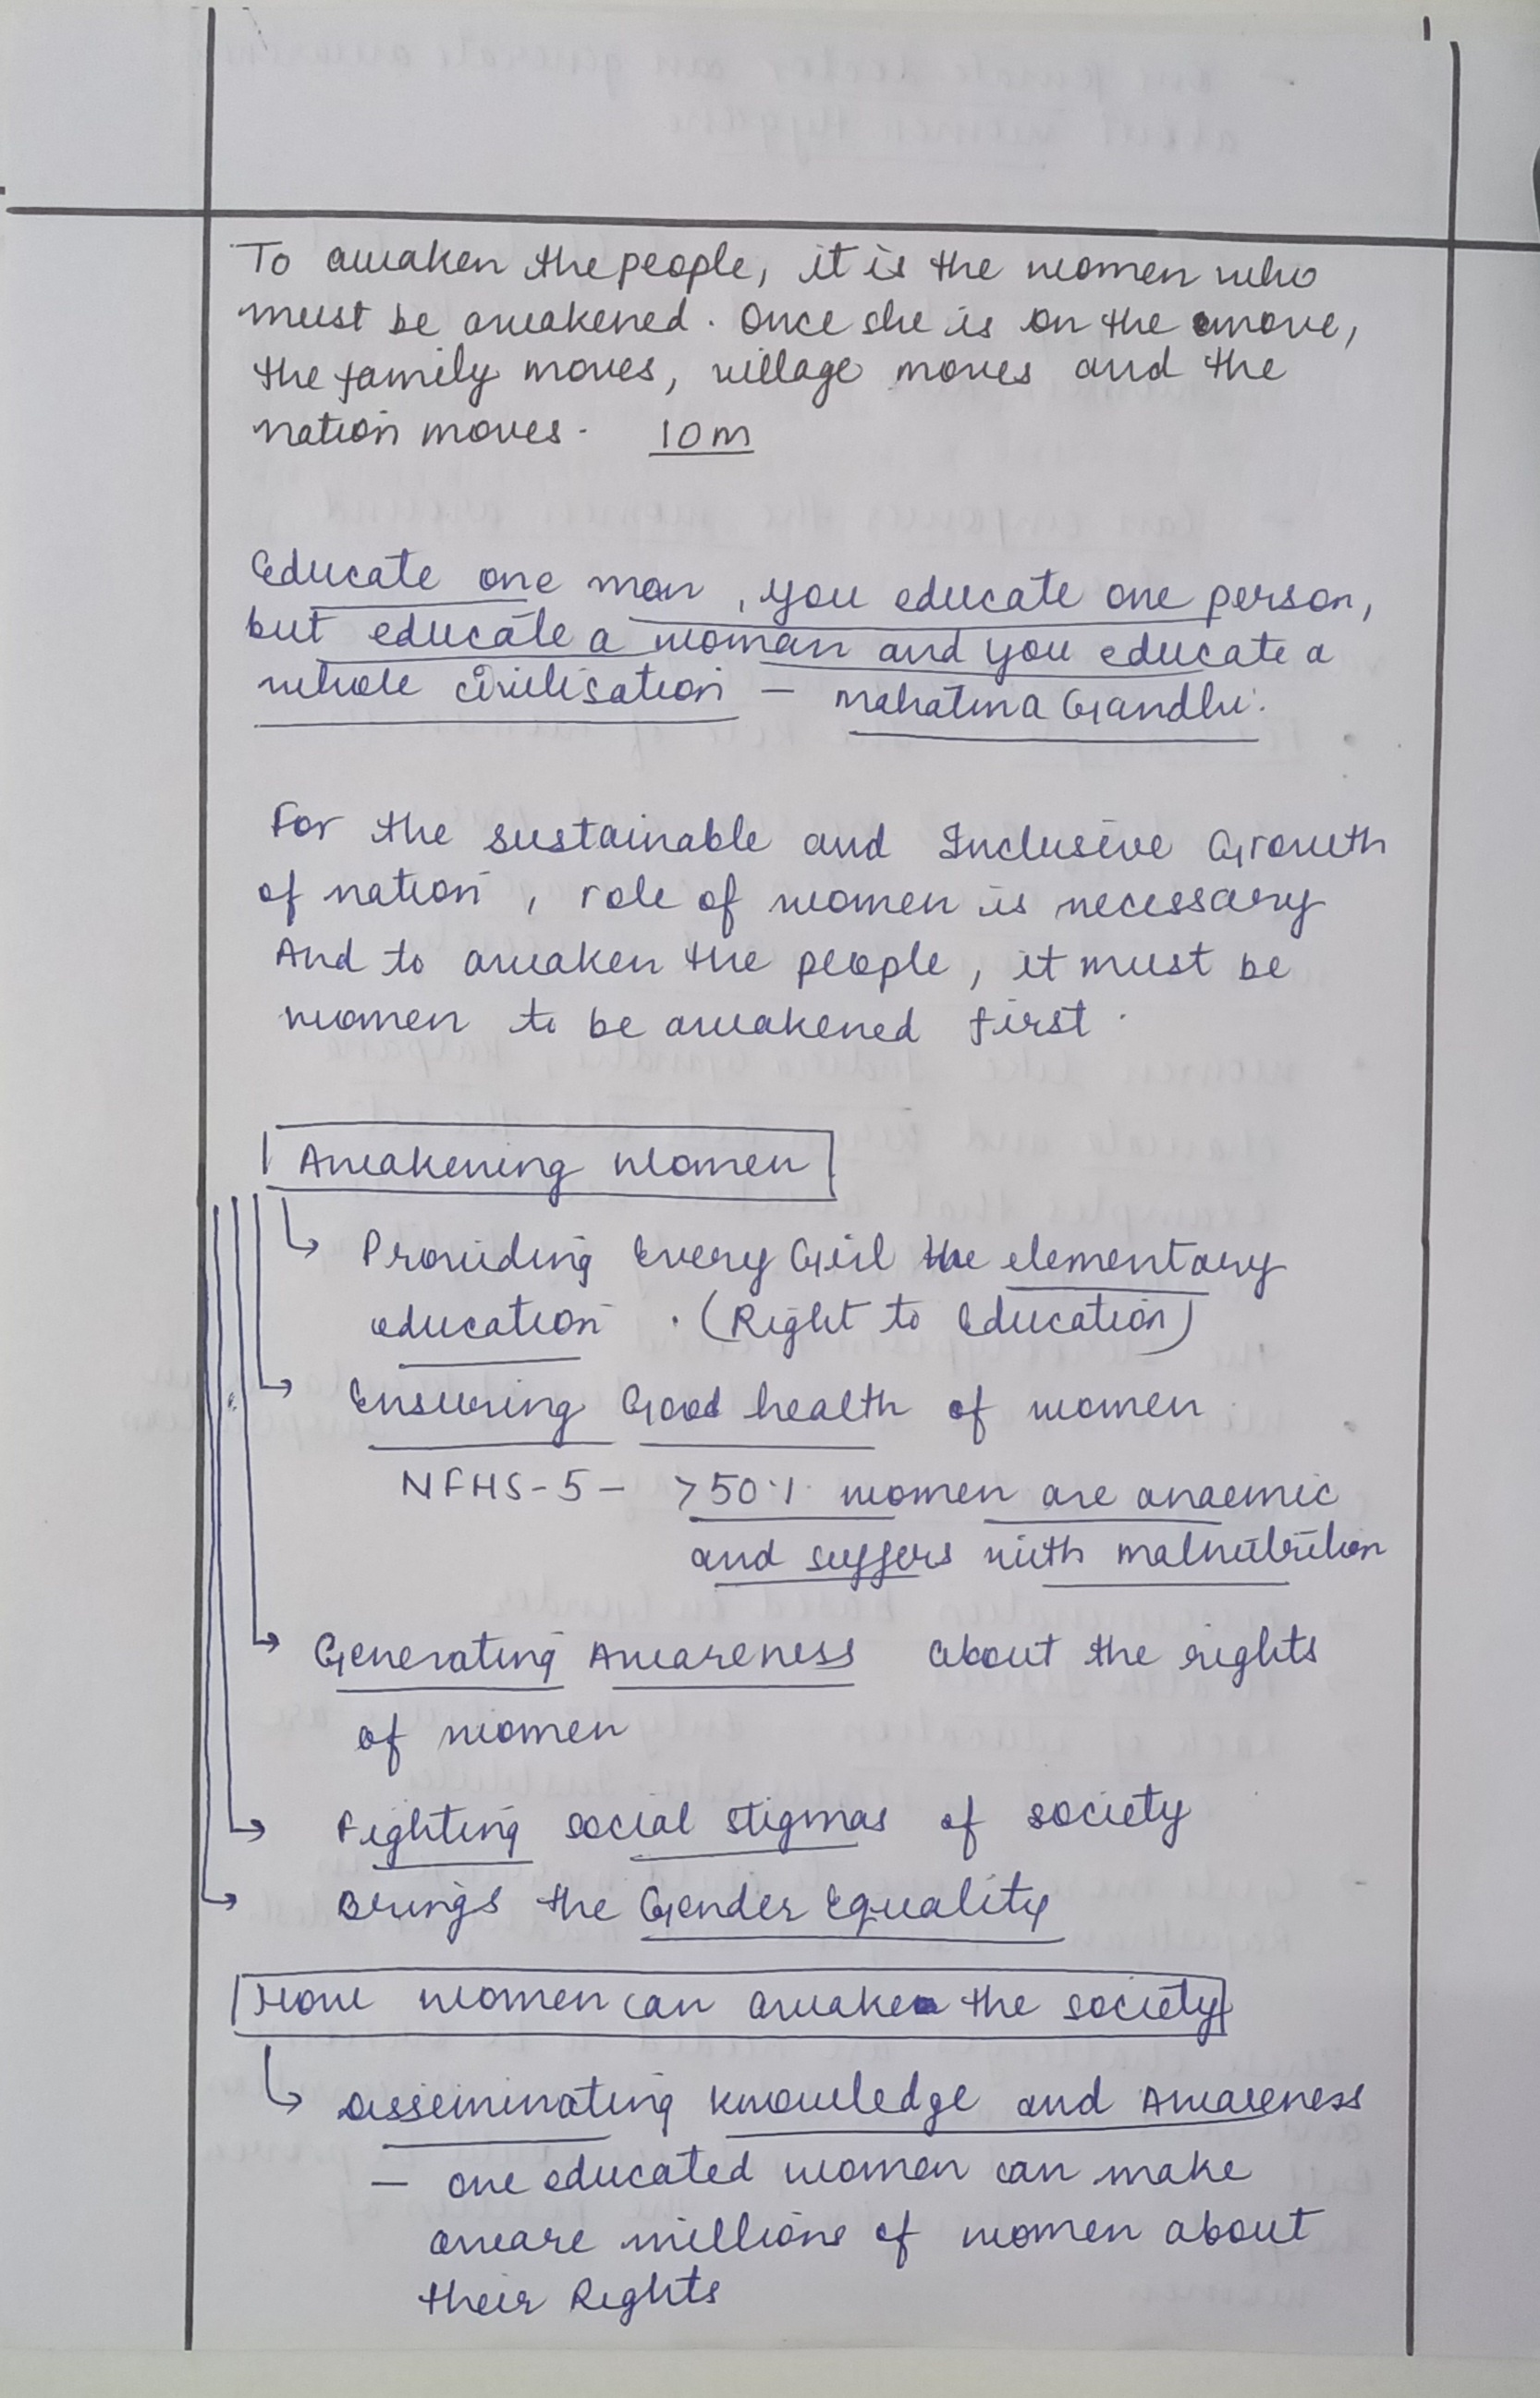 To awaken the people, it is the women who
must be awakened. Once she is on the move,
the family moves, village moves and the
nation moves. 10m
Educate one man, you educate one person,
but educate a woman and you educate a
whole civilisation - Mahatma Gandhi.
For the sustainable and Inclusive Growth
of nation, role of women is necessary
And to awaken the people, it must be
women to be awakened first.
Awakening women
↳ Providing Every Girl the elementary
education. (Right to Education)
→ Ensuring Good health of women
NFHS-5 - >50% women are anaemic
and suffers with malnutrition
→ Generating Awareness about the rights
of women
→ Fighting social stigmas of society
→ Brings the Gender Equality
How women can awake the society
↳ Disseminating knowledge and Awareness
- one educated women can make
aware millions of women about
their Rights